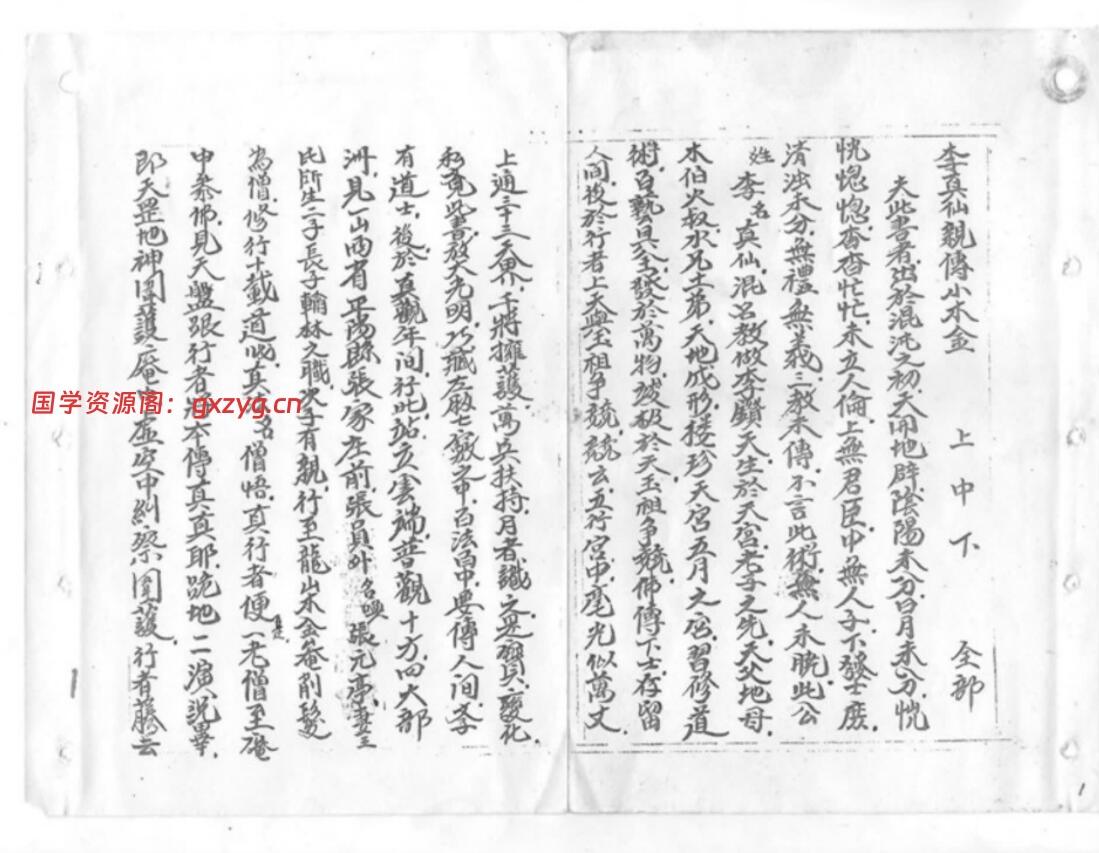 李真仙親傳小木金 上中下 全部
夫此書者出於混沌之初天開地辟陰陽未分日月未分恍
恍惚惚杳杳忙忙未立人倫上無君臣中無人子下發士庶
清濁未分無禮無義三教未傳不言此術無人未脫此公
姓李名真仙混名教做李鑽天生於天宮老子之先天父地母
木伯火叔水兄土弟天地成形 天宮五月之宮習修道
術百藝具全發於萬物 破於天玉祖争競佛傳下士存留
人間後於行者上天與玉祖争競競云五行宮中毫光似萬丈
上通三十三天界千將擁護萬兵扶持月者識之是寶變化
私 此書放大光明巧藏左廠七 之中百法皆中要傳人间
有道士後於真觀年间行此站立雲端普觀十方四大部
洲見一山西省 縣張家庄前張員外名喚張元亭妻王
氏所生二子長子翰林之職次子有親行至龍山木金菴削髮
為僧修行十載道 真 名僧悟真行者便 一老僧至 
中參佛見天盤張行者 本傳真真耶跪地二演説畢
即天罡地神圍護庵 虛空中糾察圍護行者藤云
国学资源阁：gxzyg.cn
1